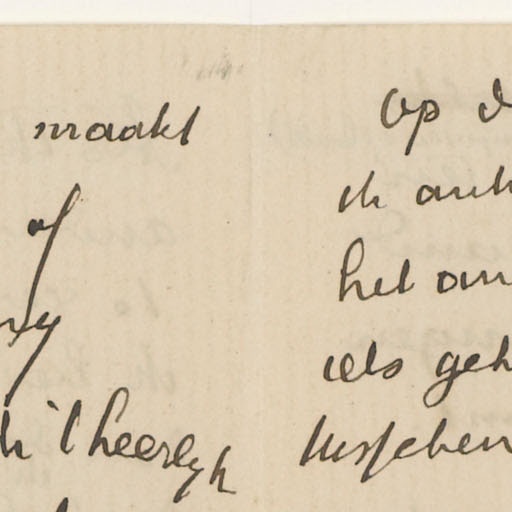 maakt
of
't heerlyk
Op
ik
het
iets geh
tusschen